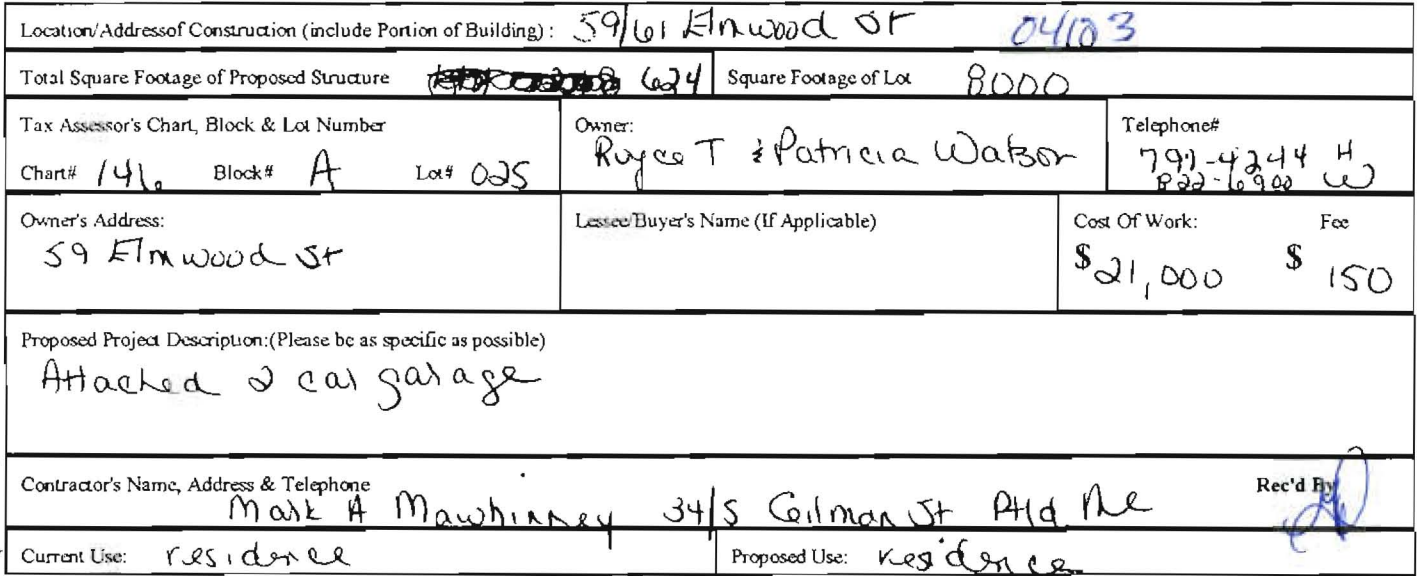 Location/Addressof Construction (include Portion of Building) : 59/61 Elmwood St 04103
Total Square Footage of Proposed Structure 624 Square Footage of Lot 8000
Tax Assessor's Chart, Block & Lot Number
Chart# 146 Block# A Lot# 025
Owner:
Royce T & Patricia Watson
Telephone#
797-4244 H
822-6900 W
Owner's Address:
59 Elmwood St
Lessee/Buyer's Name (If Applicable)
Cost Of Work: Fee
$ 21,000 $ 150
Proposed Project Description:(Please be as specific as possible)
Attached 2 car garage
Contractor's Name, Address & Telephone Rec'd By
Mark A Mawhinney 34/S Gilman St Ptld Me
Current Use: residence Proposed Use: residence